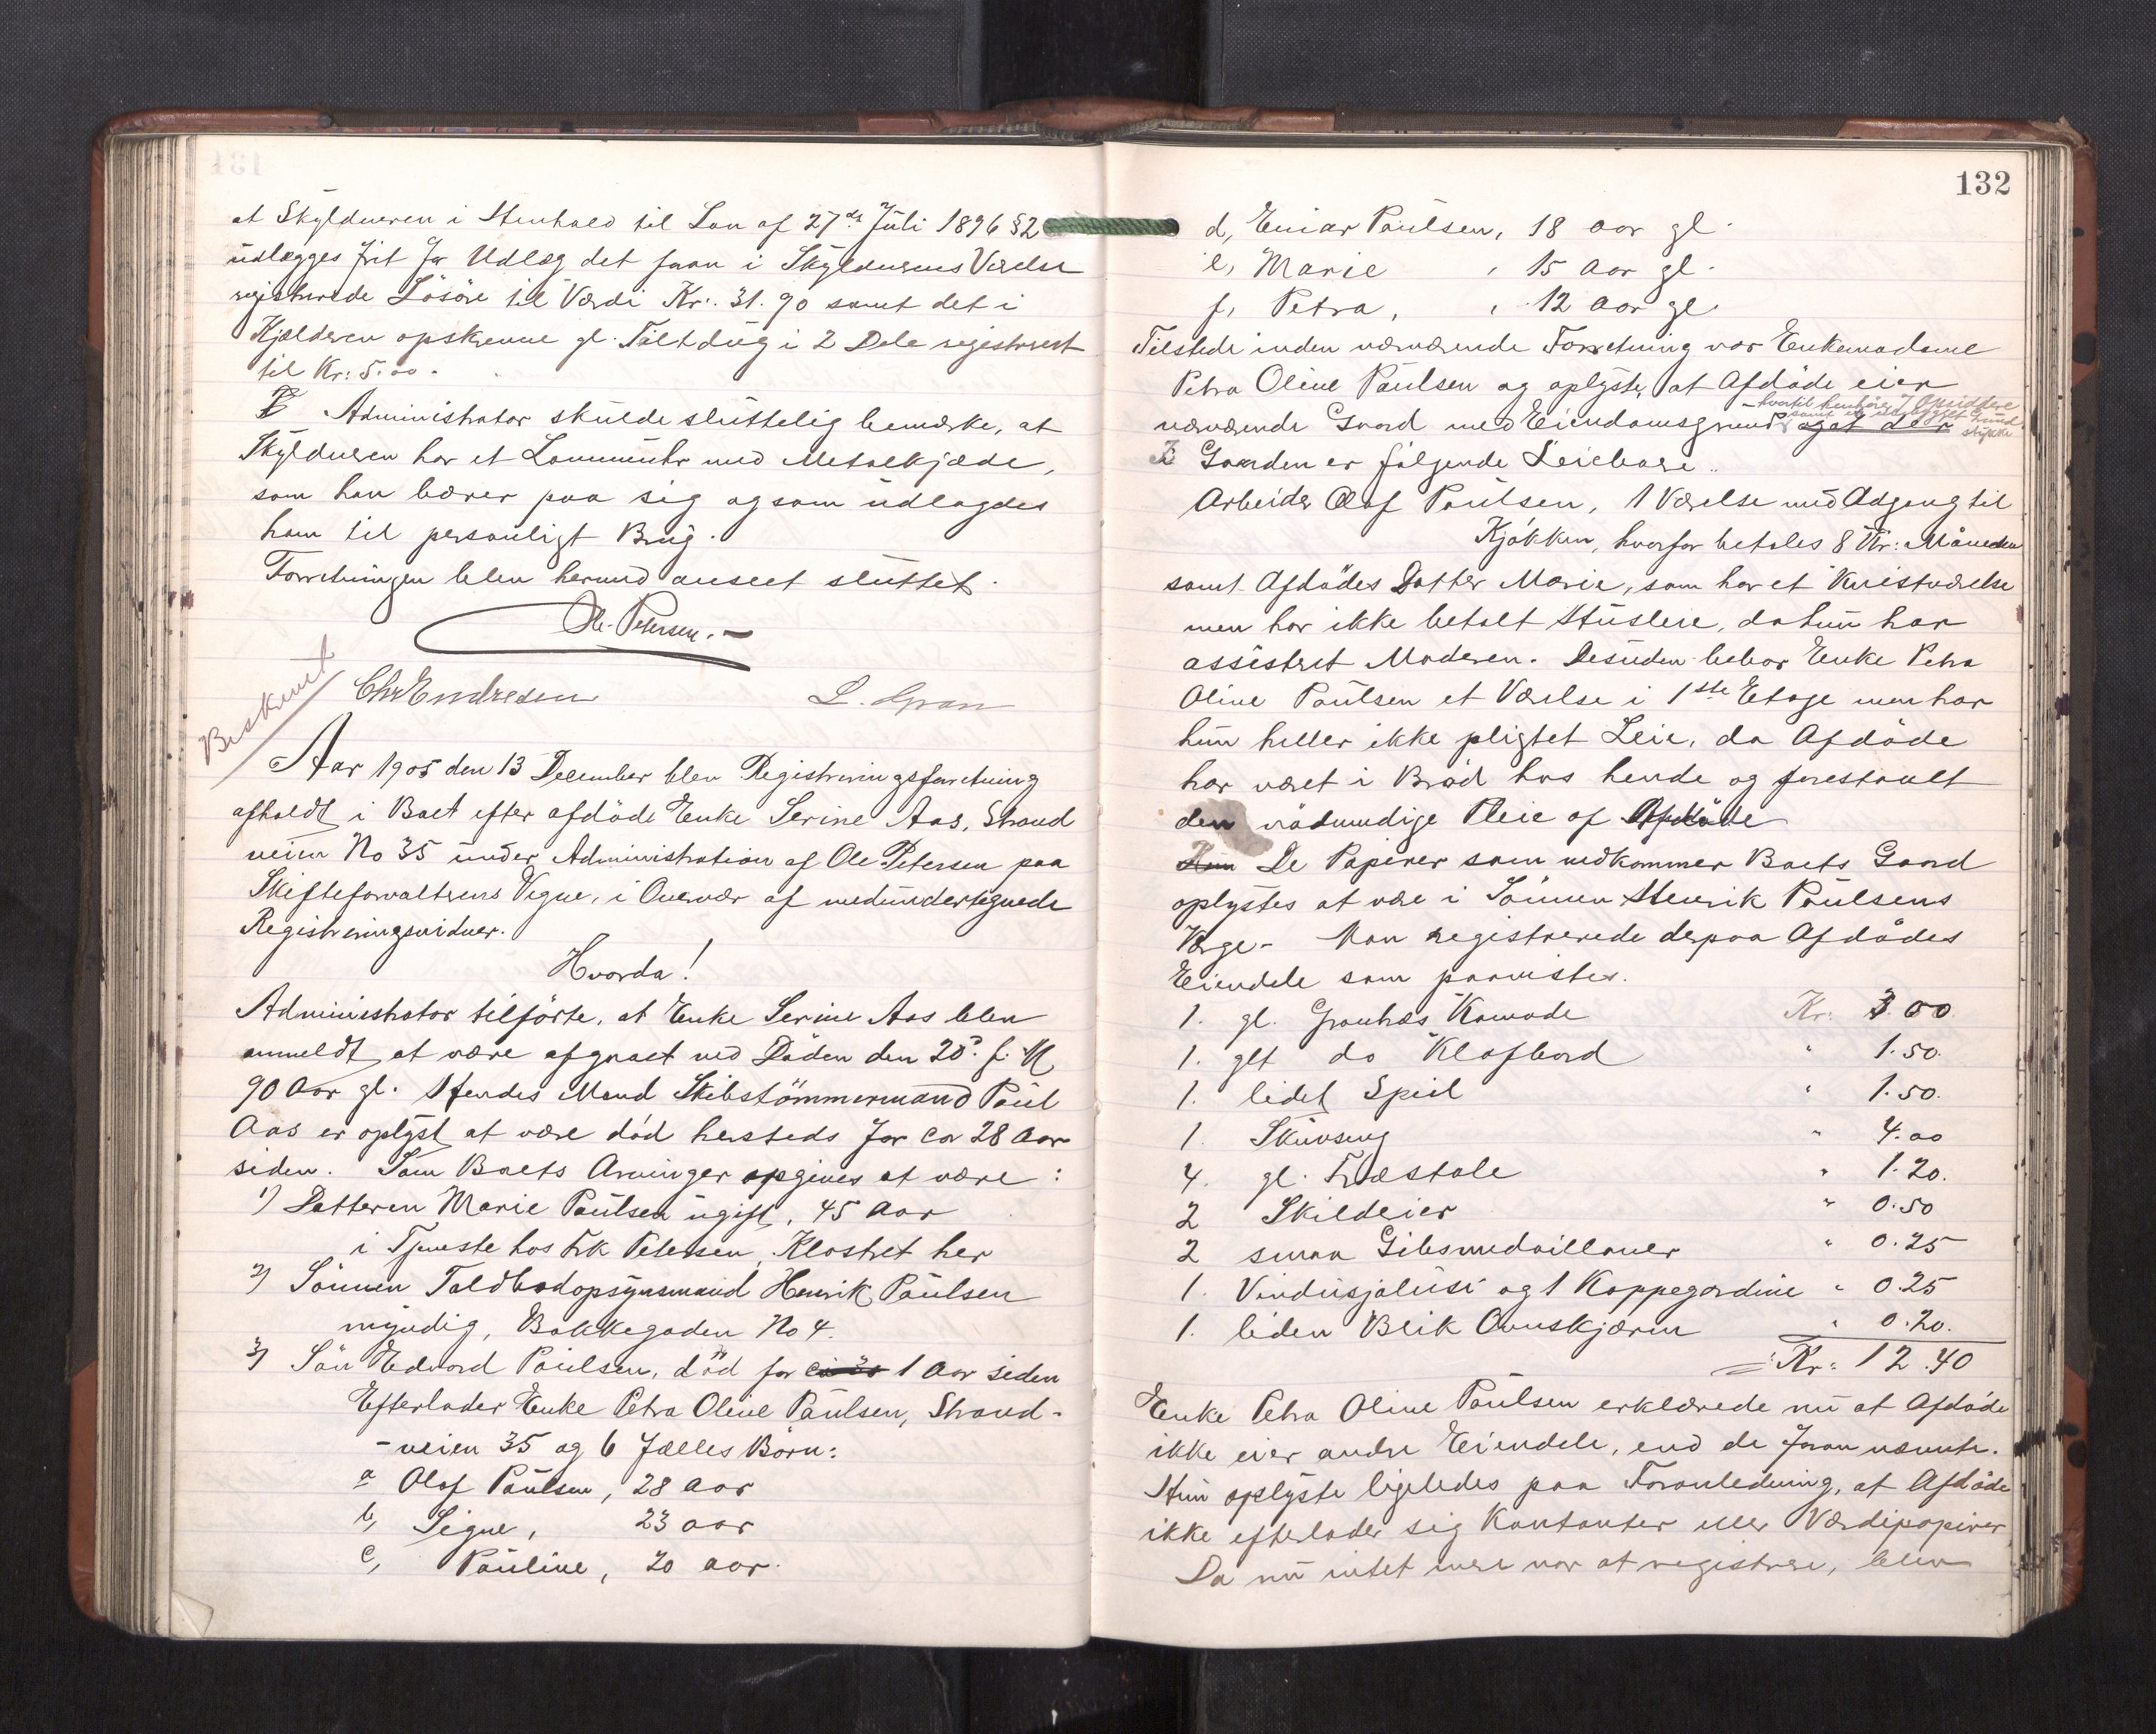 at Skyldneren i Henhold til Lov af 27de Juli 1896 §2
udlægges frit for Udlæg det foran i Skyldnerens Værelse
registrerede Lösöre til Værdi Kr: 31.90 samt det i
Kjælderen opskrevne gl. Teltdug i 2 Dele registreret
til Kr: 5.00.
Administrator skulde sluttelig bemærke, at
Skyldneren har et Lommeuhr med Metalkjæde,
som han bærer paa sig og som udlagdes
ham til personligt Brug.
Forretningen blev hermed anseet sluttet.
Ole Petersen.
Chr Endresen L. Gran
Beskrevet
Aar 1905 den 13 December blev Registreringsforretning
afholdt i Boet efter afdöde Enke Serine Aas, Strand
veien No 35 under Administration af Ole Petersen paa
Skifteforvalterens Vegne, i Overvær af medundertegnede
Registreringsvidner.
Hvorda!
Administrator tilförte, at Enke Serine Aas blev
anmeldt at være afgaaet ved Döden den 20. f. M
90 Aar gl. Hendes Mand Skibstömmermand Paul
Aas er oplyst at være död hersteds for ca 28 Aar
siden. Som Boets Arvinger opgives at være:
1) Datteren Marie Paulsen ugift, 45 Aar
i Tjeneste hos Frk Petersen, Klostret her
2) Sönnen Toldbodopsynsmand Henrik Paulsen
myndig, Bakkegaden No 4.
3) Sön Edvard Paulsen, död for 1 Aar siden
Efterlader Enke Petra Oline Paulsen, Strand-
-veien 35 og 6 fælles Börn:
a Olaf Paulsen, 28 Aar
b, Signe, 23 aar
c, Pauline, 20 aar.
132
d, Einar Paulsen, 18 aar gl.
e, Marie , 15 Aar gl.
f, Petra, , 12 aar gl
Tilstede inden nærværende Forretning var Enkemadame
Petra Oline Paulsen og oplyste, at Afdöde eier
- hvortil henhörer 7 Opsiddere
samt et ubebygget Grund
stykke
nærværende Gaard med Eiendomsgrund og at der
I Gaarden er fölgende Leieboere..
Arbeider Olaf Paulsen, 1 Værelse med Adgang til
Kjökken, hvorfor betales 8 Kr: Måneden
samt Afdödes Datter Marie, som har et Kvistværelse
men har ikke betalt Husleie, da hun har
assisteret Moderen. Desuden bebor Enke Petra
Oline Paulsen et Værelse i 1ste Etage men har
hun heller ikke pligtet Leie, da Afdöde
har været i Bröd hos hende og forestaaet
den nödvendige Pleie af Afdöde
Hun De Papirer som vedkommer Boets Gaard
oplystes at være i Sönnen Henrik Paulsens
Værge- Man registrerede derpaa Afdödes
Eiendele som paavistes.
1. gl. Granträs Komode Kr: 3.00
1. glt do Klafbord " 1.50.
1. lidet Speil " 1.50.
1. Skuvseng " 4.00
4. gl. Træstole " 1.20.
2 Skilderier " 0.50
2 smaa Gibsmedailloner " 0.25
1. Vindusjalusi og 1 Kappegardine " 0.25
1. liden Blik Ovnskjærm " 0.20.
Kr: 12.40
Enke Petra Oline Paulsen erklærede nu at Afdöde
ikke eier andre Eiendele, end de foran nævnte.
Hun oplyste ligeledes paa Foranledning, at Afdöde
ikke efterlader sig Kontanter eller Værdipapirer
Da nu intet mere var at registrere, blev